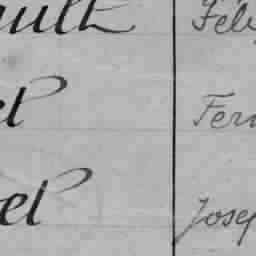 ault Féli
el Fern
el Josep